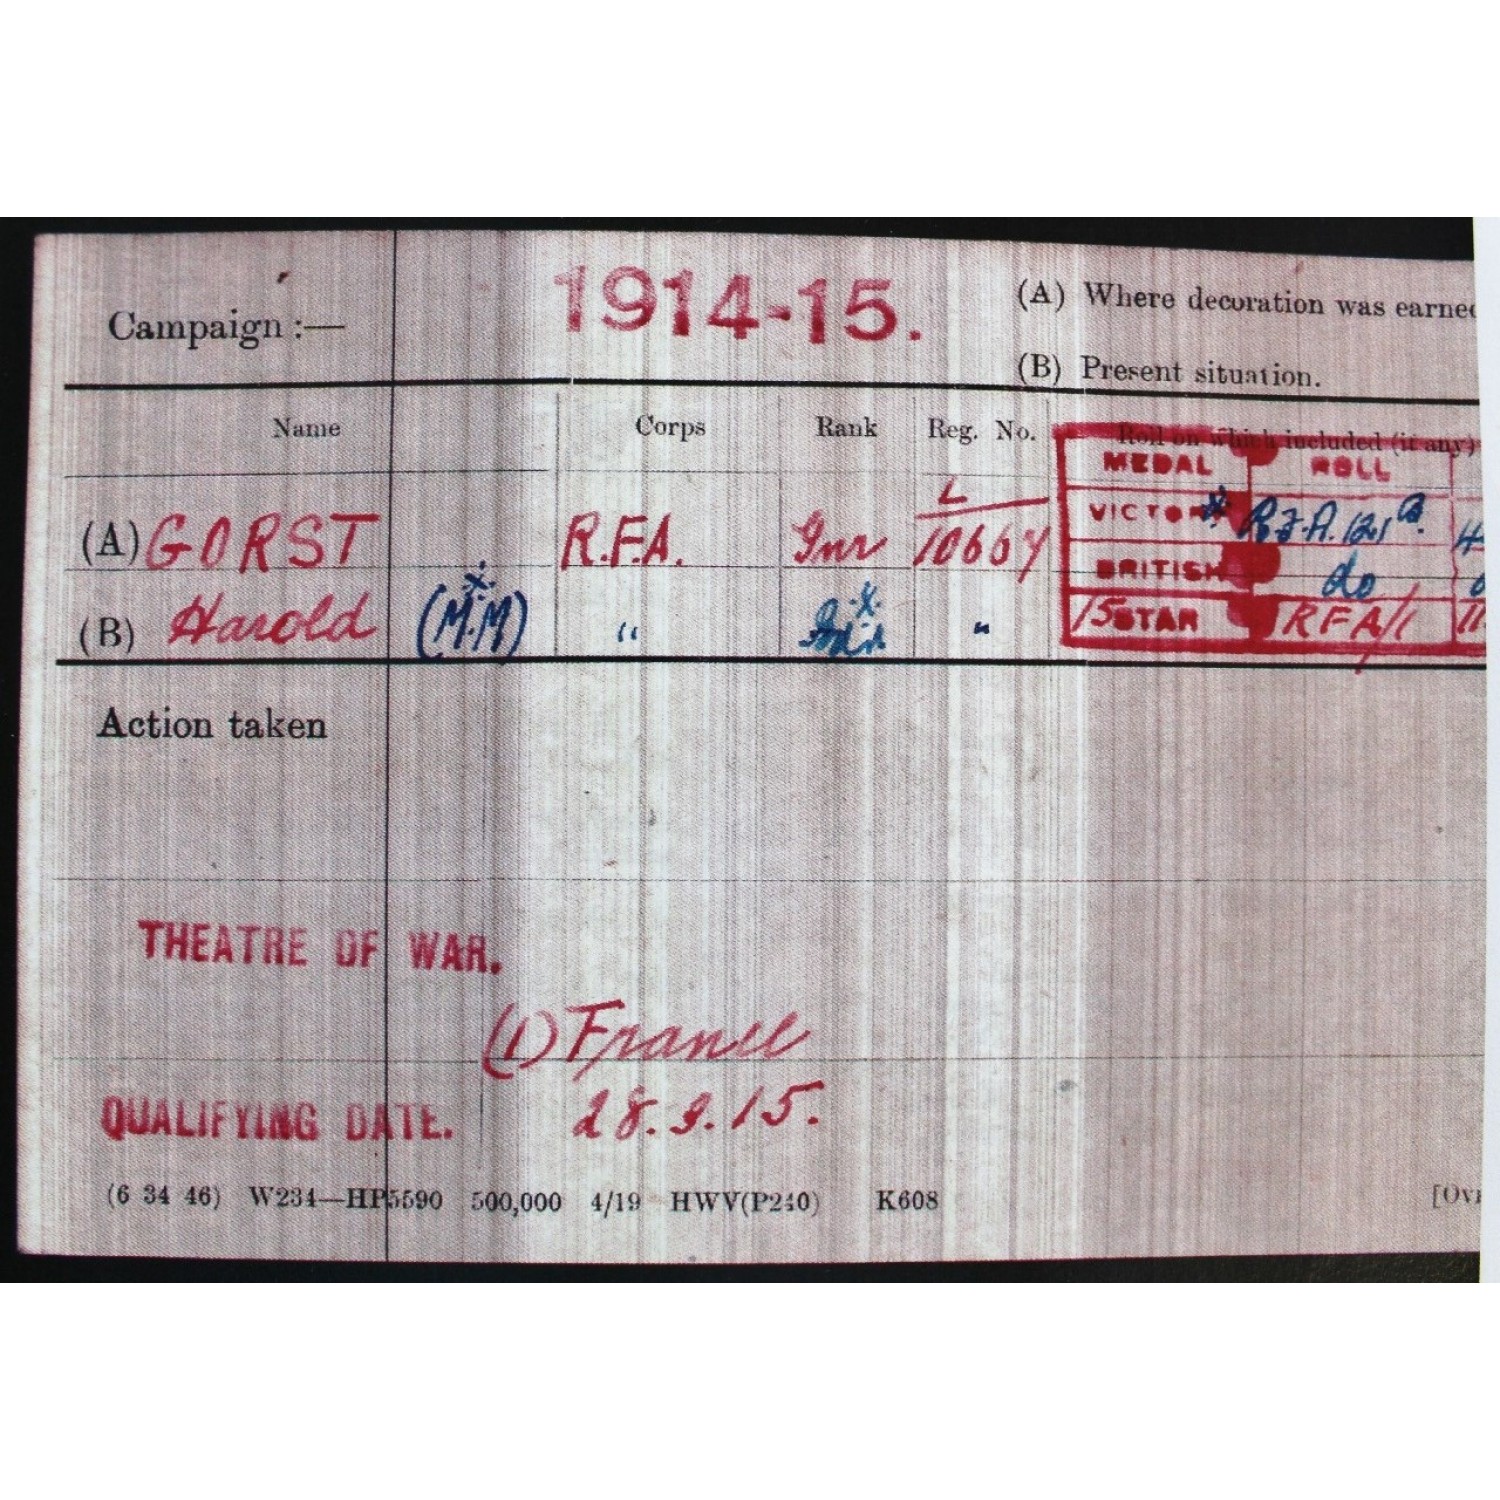 Campaign :— 1914-15. (A) Where decoration was earned
(B) Present situation.
Name Corps Rank Reg. No. Roll on which included (if any)
MEDAL ROLL
L
(A) GORST R.F.A. Gnr 10667 VICTOR R.F.A. 121 B.
BRITISH do
(B) Harold (M.M) " " 15 STAR RFA/1
Action taken
THEATRE OF WAR.
(1) France
QUALIFYING DATE. 28.9.15.
(6 34 46) W234—HP5590 500,000 4/19 HWV(P240) K608